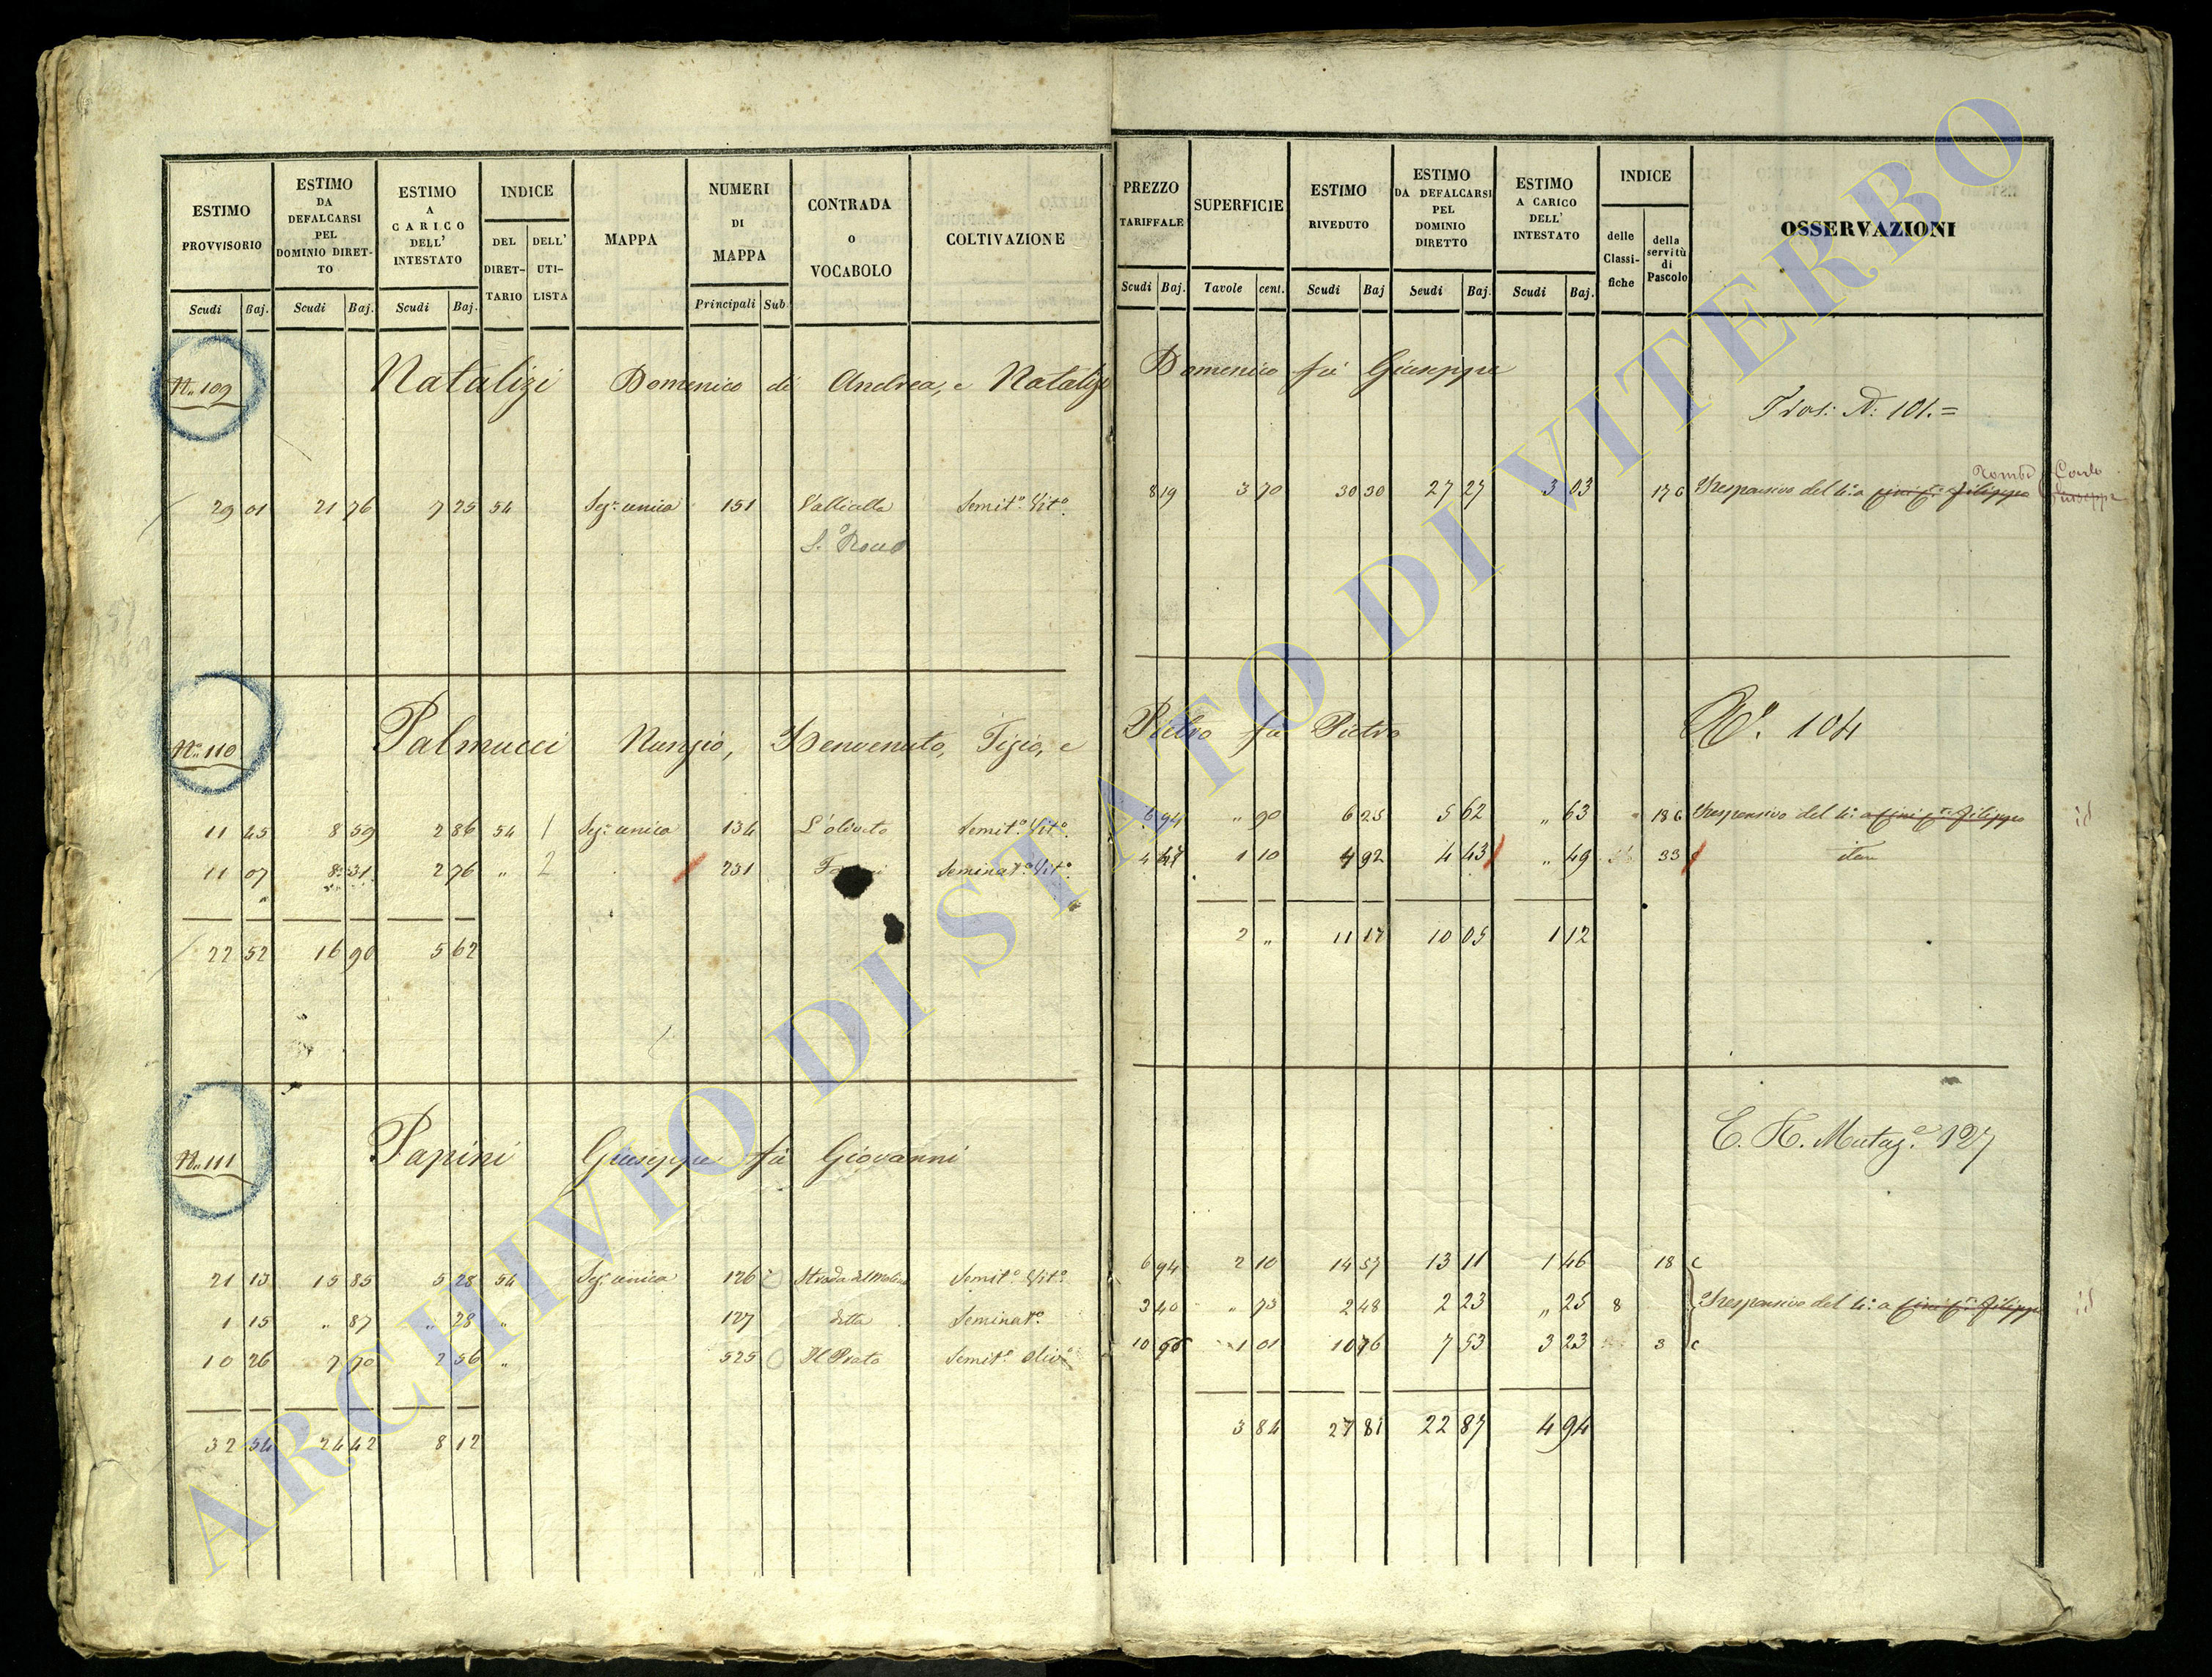 ESTIMO PROVVISORIO
ESTIMO DA DEFALCARSI PEL DOMINIO DIRETTO
ESTIMO A CARICO DELL' INTESTATO
INDICE
DEL DIRETTARIO
DELL' UTILISTA
MAPPA
NUMERI DI MAPPA
CONTRADA O VOCABOLO
COLTIVAZIONE
Scudi Baj. Scudi Baj. Scudi Baj. Principali Sub.
N. 109 Natalizi Domenico di Andrea, e Natalizi
29 01 21 76 7 25 54 Sez. unica 151 Vallicella Semit.o Vit.o
S. Rocco
No. 110 Palmucci Nunzio, Benvenuto, Tizio, e
11 45 8 59 2 86 54 1 Sez. unica 134 L'oliveto Semit.o Vit.o
11 07 8 31 2 76 " 2 231 Seminat.o Vit.o
22 52 16 90 5 62
N. 111 Papini Giuseppe fu Giovanni
21 13 15 85 5 28 54 Sez. unica 126 Strada del Molino Semit.o Vit.o
1 15 " 87 " 28 " 127 detta Seminat.o
10 26 7 70 2 56 " 525 Il Prato Semit.o Oliv.o
32 54 24 42 8 12
PREZZO TARIFFALE
SUPERFICIE
ESTIMO RIVEDUTO
ESTIMO DA DEFALCARSI PEL DOMINIO DIRETTO
ESTIMO A CARICO DELL' INTESTATO
INDICE
delle Classifiche
della servitù di Pascolo
OSSERVAZIONI
Scudi Baj. Tavole cent. Scudi Baj Scudi Baj. Scudi Baj.
Domenico fu Giuseppe
N: 101.=
8 19 3 70 30 30 27 27 3 03 17 Responsivo del 4.o a
Pietro fu Pietro No. 104
6 94 " 90 6 25 5 62 " 63 18 Responsivo del 4.o a id
4 47 1 10 4 92 4 43 " 49 33 item
2 " 11 17 10 05 1 12
C. N. Mutaz.e 127
6 94 2 10 14 57 13 11 1 46 18
3 40 " 73 2 48 2 23 " 25 8 Responsivo del 4.o a id
10 66 1 01 10 76 7 53 3 23 3
3 84 27 81 22 87 4 94
ARCHIVIO DI STATO DI VITERBO